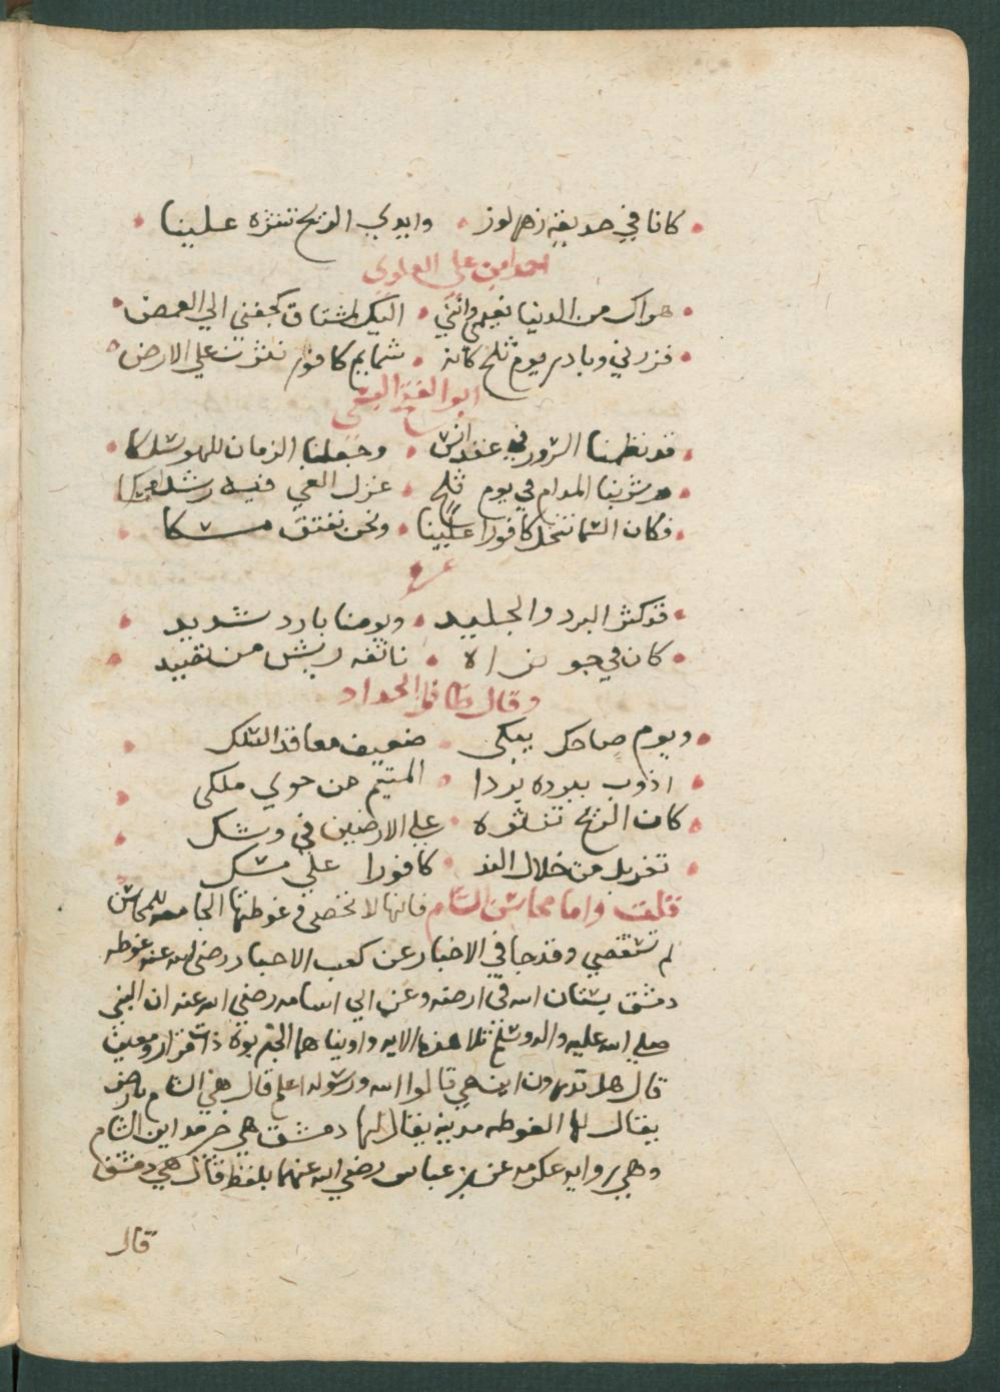 كانا في حديقة زهر لوز وايدي الريح تنثره علينا
احمد ابن علي العلوي
هواك من الدنيا نعيمي وانني اليك لمشتاق كجفني الي الغمض
فزرني وبادر يوم ثلج كانه شمايم كافور نثرت علي الارض
ابو الفتح البستي
قد نظمنا السرور في عقد انس وجعلنا الزمان للهو سلكا
وشربنا المدام في يوم ثلج عزل الغي فيه رشدا
فكان السما تنخل كافورا علينا ونحن نفتق مسكا
غيره
قد كثر البرد والجليد ويومنا بارد شديد
كان في جو نراه ناتفه ريش من بعيد
وقال ظافر الحداد
ويوم ضاحك يبكي ضعيف معاقد السلك
اذوب ببرده بردا المتيم من حوي ملكي
كان الريح تنثره علي الارضين في وشك
تغربل من خلال الند كافورا علي مسك
قلت واما محاسن الشام فانها لا تحصى وغوطتها الجامعه للمحاسن
لم تستقصي وقد جا في الاخبار عن كعب الاحبار رضي الله عنه غوطه
دمشق بستان الله في ارضه وعن ابي اسامه رضي الله عنه ان النبي
صلي الله عليه واله وسلم تلا هذه الايه واويناهما الي ربوة ذات قرار ومعين
قال هل تدرون اين هي قالوا الله ورسوله اعلم قال هي الشام بارض
يقال لها الغوطه مدينة يقال لها دمشق هي خير مداين الشام
وهي روايه عكرمه عن بن عباس رضي الله عنهما بلفظ قال هي دمشق
قال